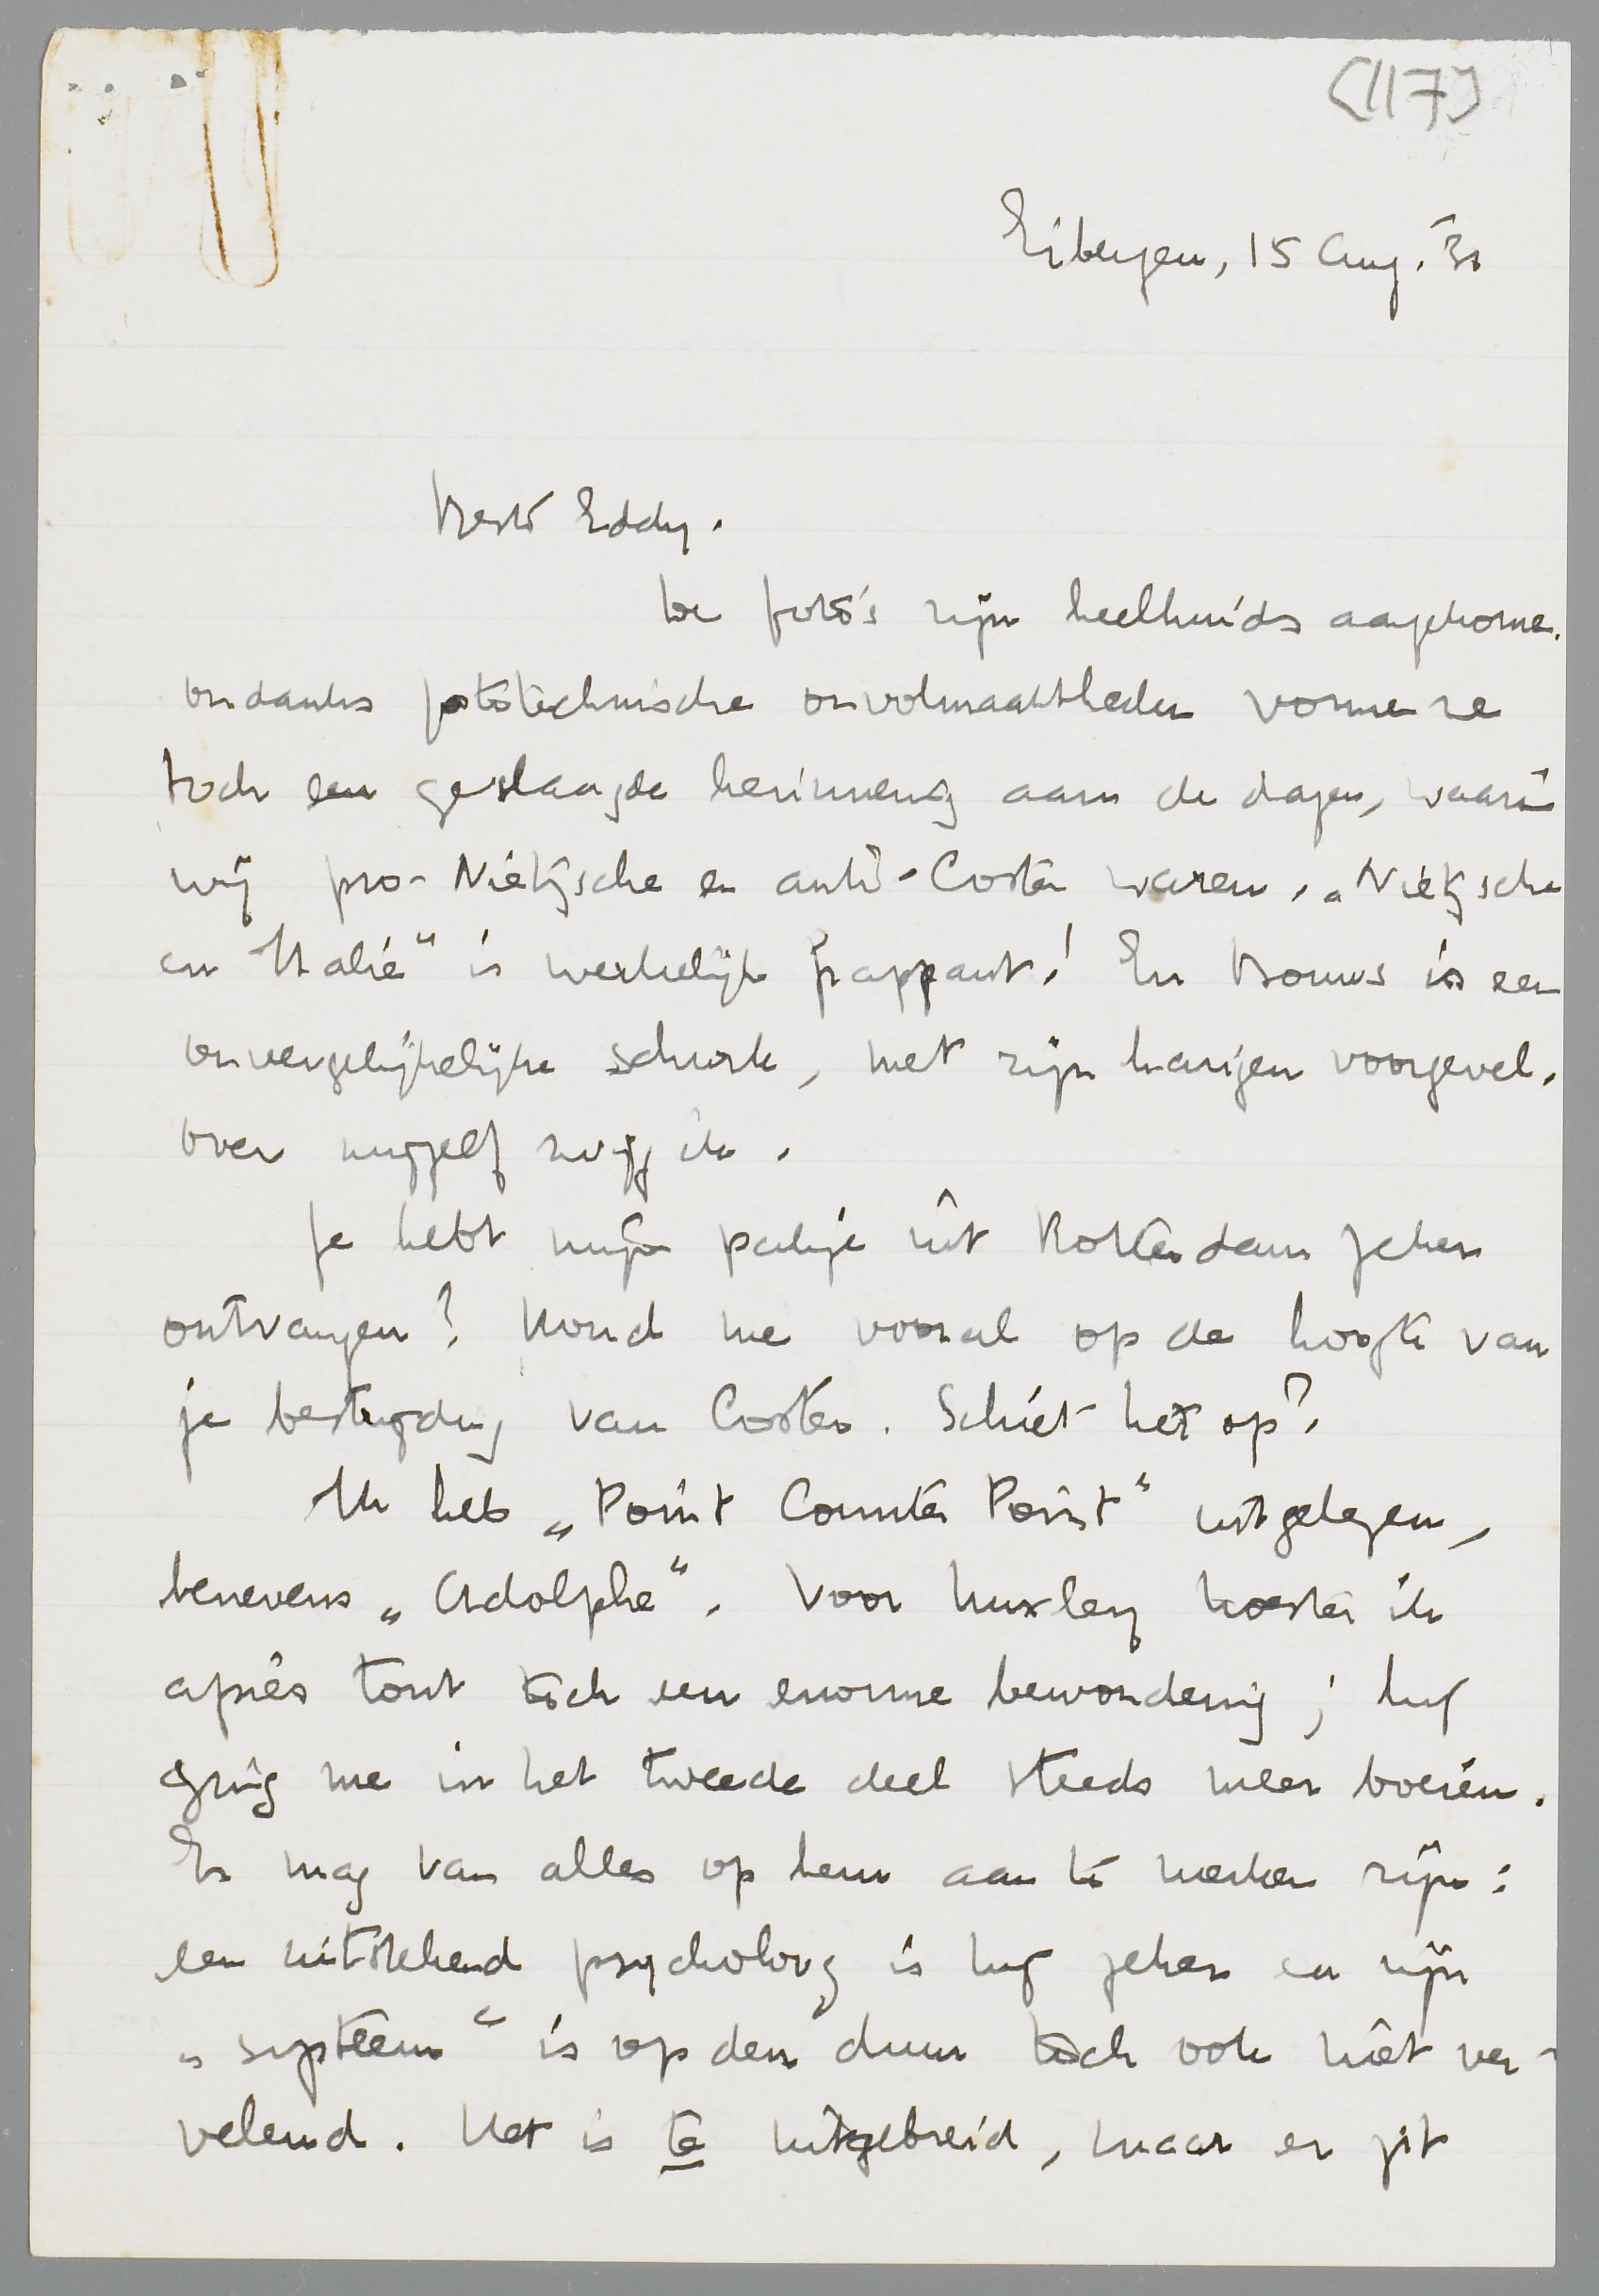 (117)
Eibergen, 15 Aug. '31
Beste Eddy.
De foto's zijn heelhuids aangekomen.
Ondanks fototechnische onvolmaaktheden vormen ze
toch een geslaagde herinnering aan de dagen, waarin
wij pro-Nietzsche en anti-Coster waren. „Nietzsche
en Italië" is werkelijk frappant! En Bouws is een
onvergelijkelijke schurk, met zijn harigen voorgevel.
Over mijzelf zwijg ik.
Je hebt mijn pakje uit Rotterdam zeker
ontvangen? Houd me vooral op de hoogte van
je bestrijding van Coster. Schiet het op?
Ik heb „Point Counter Point" uitgelezen,
benevens „Adolphe". Voor Huxley koester ik
après tout toch een enorme bewondering; hij
ging me in het tweede deel steeds meer boeien.
Er mag van alles op hem aan te merken zijn:
een uitstekend psycholoog is hij zeker en zijn
„systeem" is op den duur toch ook niet ver-
velend. Het is te uitgebreid, maar er zit